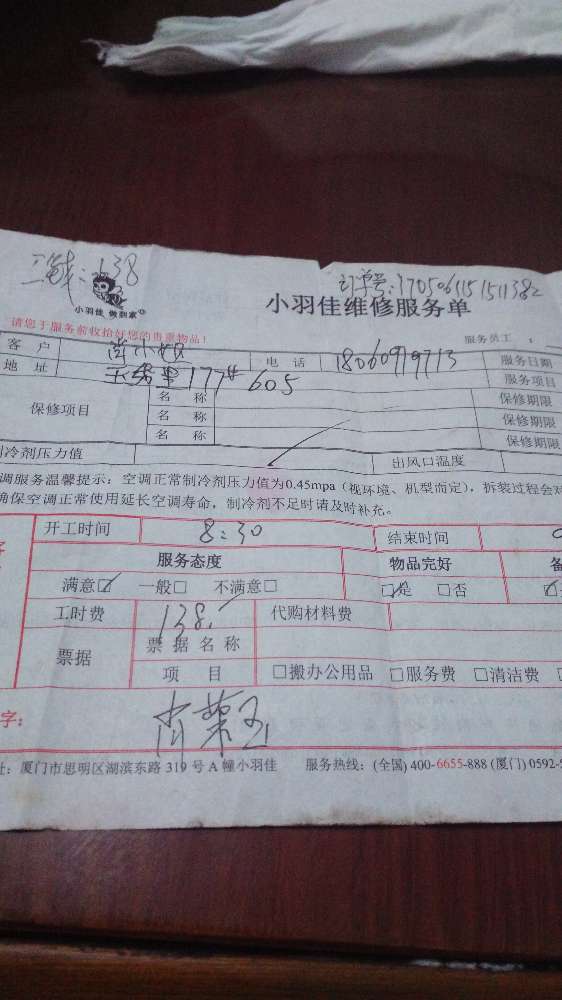 138
订单号:1705061151511382
小羽佳 做到家
小羽佳维修服务单
请您于服务前收拾好您的贵重物品!
服务员工:
客户 肖小姐 电话 18060919713 服务日期
地址 177# 605 服务项目
保修项目 名称 保修期限
名称 保修期限
名称 保修期限
制冷剂压力值 出风口温度
调服务温馨提示:空调正常制冷剂压力值为0.45mpa(视环境、机型而定),拆装过程会对
确保空调正常使用延长空调寿命,制冷剂不足时请及时补充。
开工时间 8:30 结束时间
服务态度 物品完好
满意☑ 一般□ 不满意□ ☑是 □否
工时费 138. 代购材料费
票据 票据名称
项目 □搬办公用品 □服务费 □清洁费
字:
址:厦门市思明区湖滨东路319号A幢小羽佳 服务热线:(全国)400-6655-888(厦门)0592-5